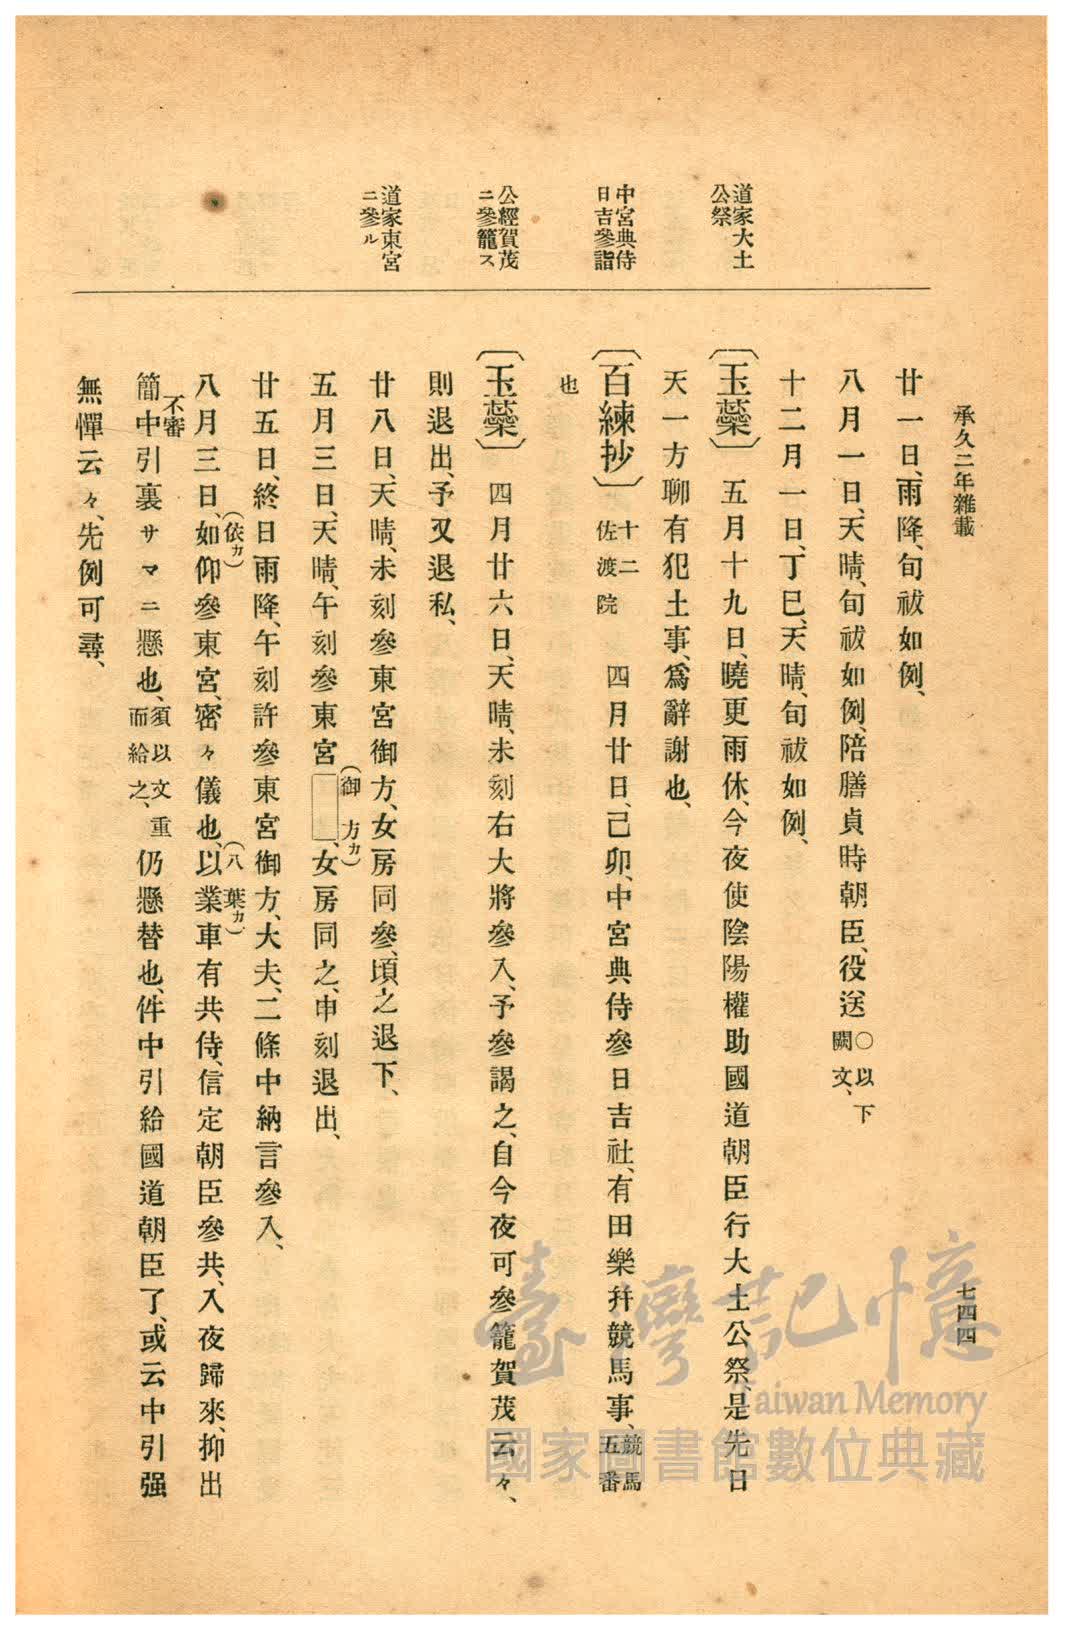 承久二年雜載
七四四
道家大土
公祭
中宮典侍
日吉參詣
公經賀茂
ニ參籠ス
道家東宮
ニ參ル
廿一日、雨降、旬祓如例、
八月一日、天晴、旬祓如例、陪膳貞時朝臣、役送〇以下闕文、
十二月一日、丁巳、天晴、旬祓如例、
〔玉蘂〕五月十九日、曉更雨休、今夜使陰陽權助國道朝臣行大土公祭、是先日
天一方聊有犯土事、爲辭謝也、
〔百練抄〕十二佐渡院四月廿日、己卯、中宮典侍參日吉社、有田樂幷競馬事、競馬五番
也
〔玉蘂〕四月廿六日、天晴、未刻右大將參入、予參謁之、自今夜可參籠賀茂云々、
則退出、予又退私、
廿八日、天晴、未刻參東宮御方、女房同參、頃之退下、
五月三日、天晴、午刻參東宮（御方カ）、女房同之、申刻退出、
廿五日、終日雨降、午刻許參東宮御方、大夫、二條中納言參入、
八月三日、如（依カ）仰參東宮、密々儀也、以業（八葉カ）車有共侍、信定朝臣參共、入夜歸來、抑出
簡不審中引裏サマニ懸也、須以文重而給之、仍懸替也、件中引給國道朝臣了、或云中引强
無憚云々、先例可尋、
臺灣記憶
Taiwan Memory
國家圖書館數位典藏